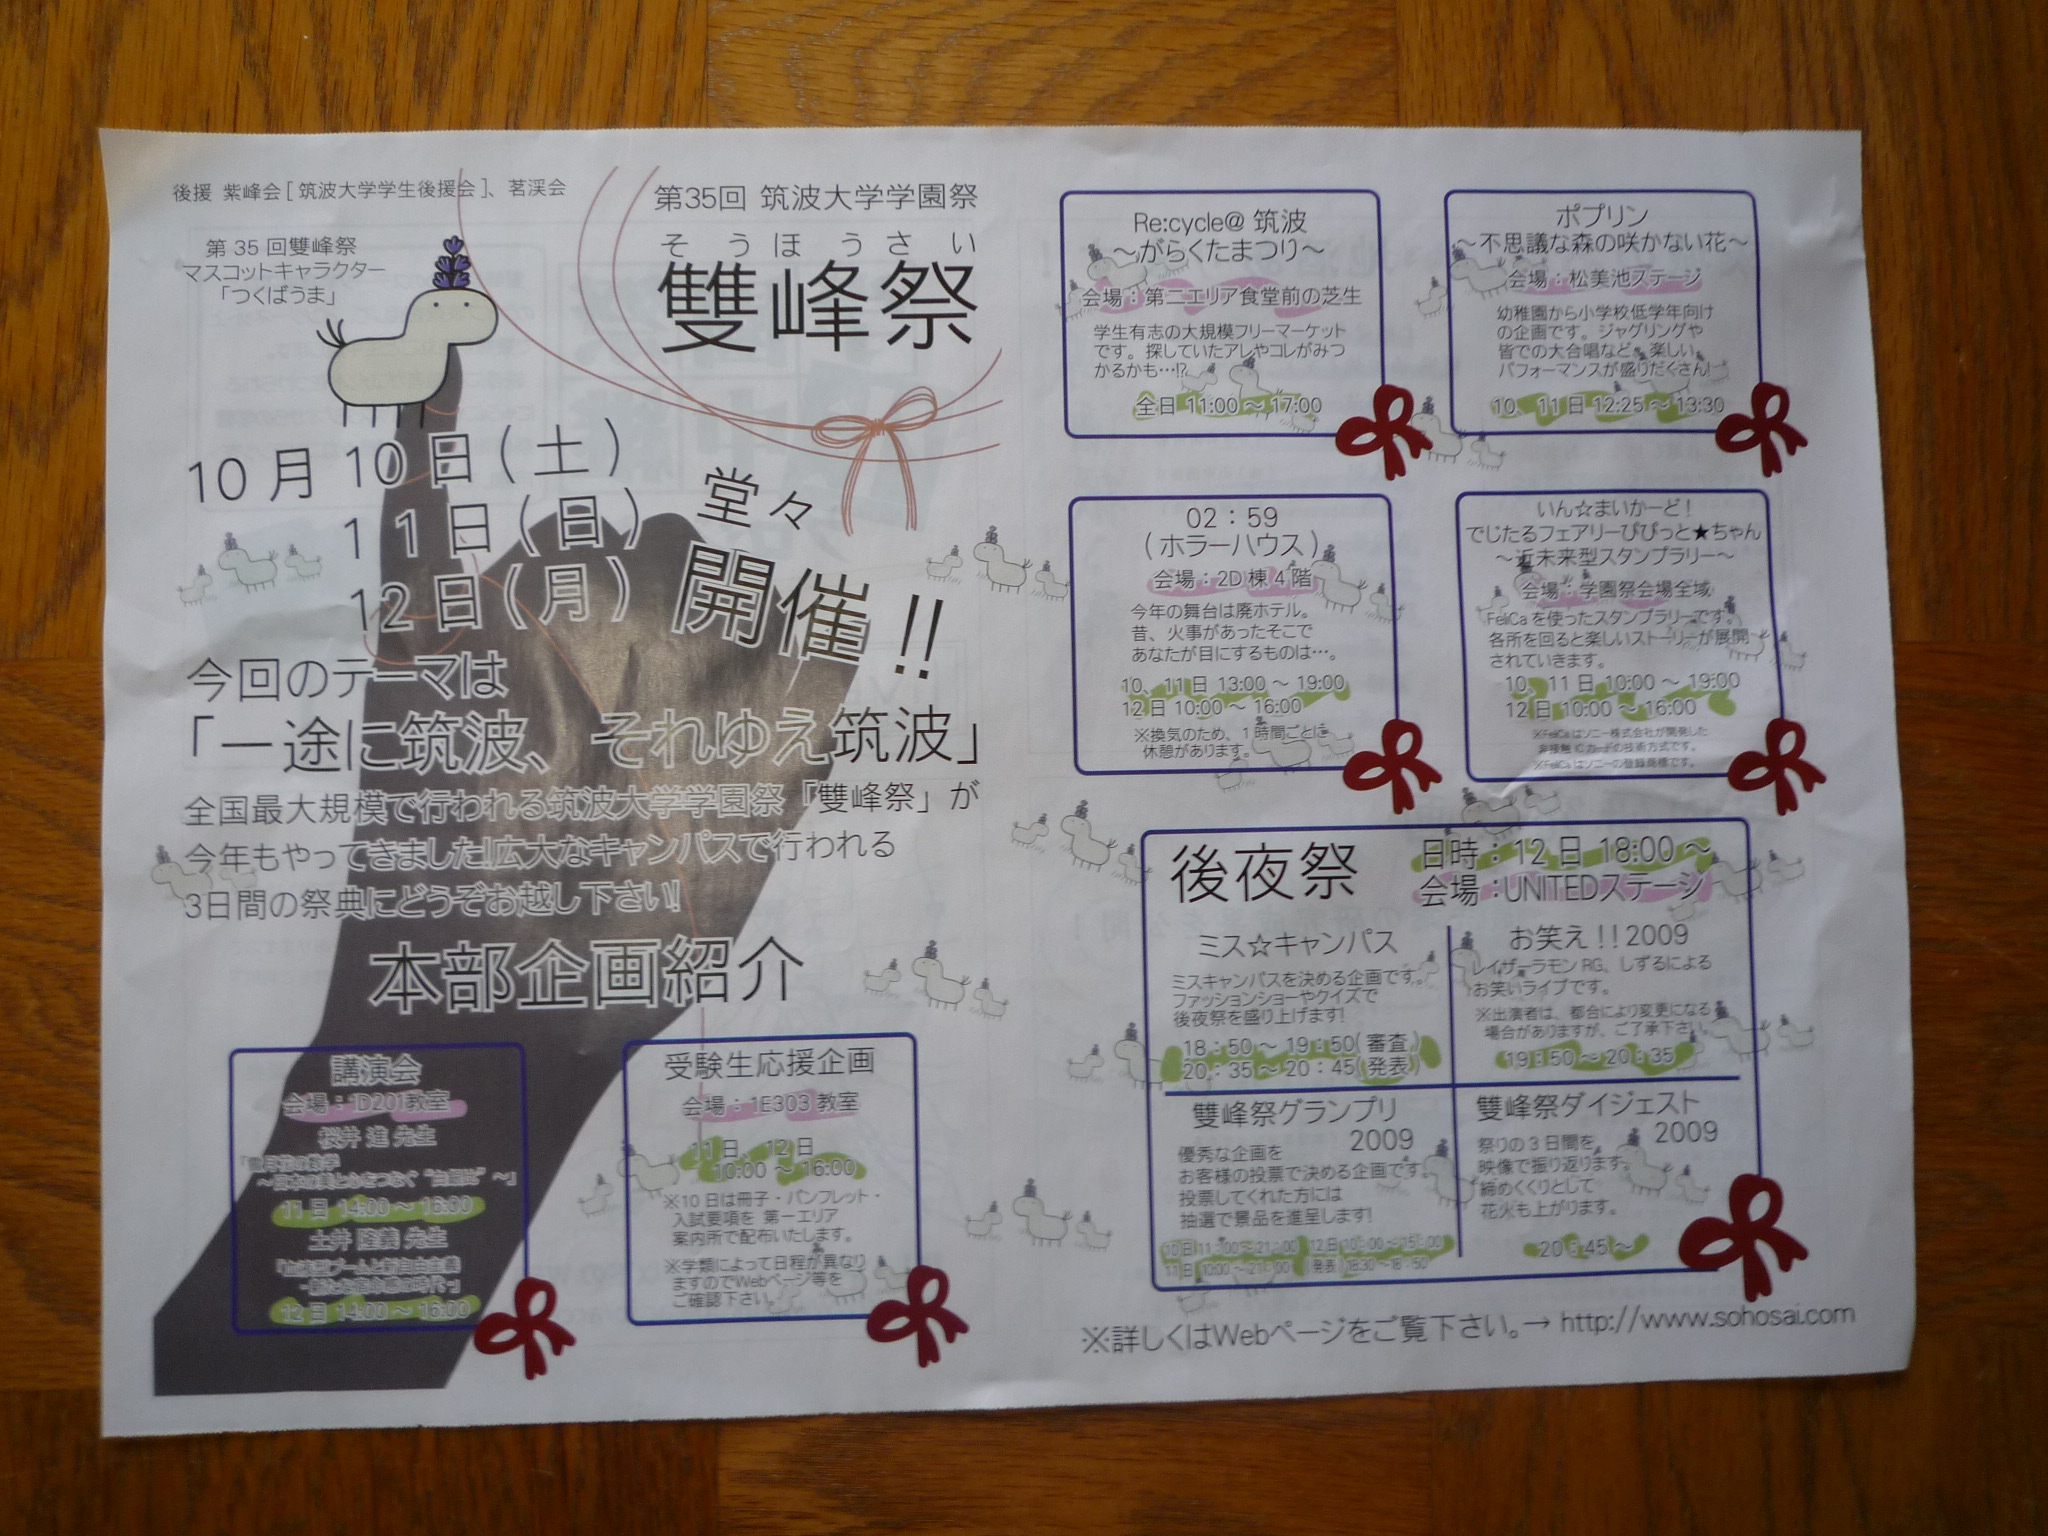 後援 紫峰会[筑波大学学生後援会]、茗渓会
第35回 筑波大学学園祭
そうほうさい
雙峰祭
第35回雙峰祭
マスコットキャラクター
「つくばうま」
10月10日(土)
11日(日)
12日(月)
堂々
開催!!
今回のテーマは
「一途に筑波、それゆえ筑波」
全国最大規模で行われる筑波大学学園祭「雙峰祭」が
今年もやってきました!広大なキャンパスで行われる
3日間の祭典にどうぞお越し下さい!
本部企画紹介
講演会
会場:1D201教室
桜井 進 先生
11日 14:00～16:00
土井 隆義 先生
12日 14:00～16:00
受験生応援企画
会場:1E303教室
11日、12日
10:00～16:00
※10日は冊子・パンフレット・
入試要項を 第一エリア
案内所で配布いたします。
※学類によって日程が異なり
ますのでWebページ等を
ご確認下さい。
Re:cycle@筑波
～がらくたまつり～
会場:第二エリア食堂前の芝生
学生有志の大規模フリーマーケット
です。探していたアレやコレがみつ
かるかも…!?
全日 11:00～17:00
ポプリン
～不思議な森の咲かない花～
会場:松美池ステージ
幼稚園から小学校低学年向け
の企画です。ジャグリングや
皆での大合唱など、楽しい
パフォーマンスが盛りだくさん!
10、11日 12:25～13:30
02:59
(ホラーハウス)
会場:2D棟4階
今年の舞台は廃ホテル。
昔、火事があったそこで
あなたが目にするものは…。
10、11日 13:00～19:00
12日 10:00～16:00
※換気のため、1時間ごとに
休憩があります。
いん☆まいかーど!
でじたるフェアリーぴぴっと★ちゃん
～近未来型スタンプラリー～
会場:学園祭会場全域
FeliCaを使ったスタンプラリーです。
各所を回ると楽しいストーリーが展開
されていきます。
10、11日 10:00～19:00
12日 10:00～16:00
※FeliCaはソニー株式会社が開発した
非接触ICカードの技術方式です。
※FeliCaはソニーの登録商標です。
後夜祭
日時:12日 18:00～
会場:UNITEDステージ
ミス☆キャンパス
ミスキャンパスを決める企画です。
ファッションショーやクイズで
後夜祭を盛り上げます!
18:50～19:50(審査)
20:35～20:45(発表)
お笑え!!2009
レイザーラモンRG、しずるによる
お笑いライブです。
※出演者は、都合により変更になる
場合がありますが、ご了承下さい。
19:50～20:35
雙峰祭グランプリ
2009
優秀な企画を
お客様の投票で決める企画です。
投票してくれた方には
抽選で景品を進呈します!
10日 11:00～21:00 12日 10:00～15:00
11日 10:00～21:00 (発表) 18:30～18:50
雙峰祭ダイジェスト
2009
祭りの3日間を、
映像で振り返ります。
締めくくりとして
花火も上がります。
20:45～
※詳しくはWebページをご覧下さい。→ http://www.sohosai.com